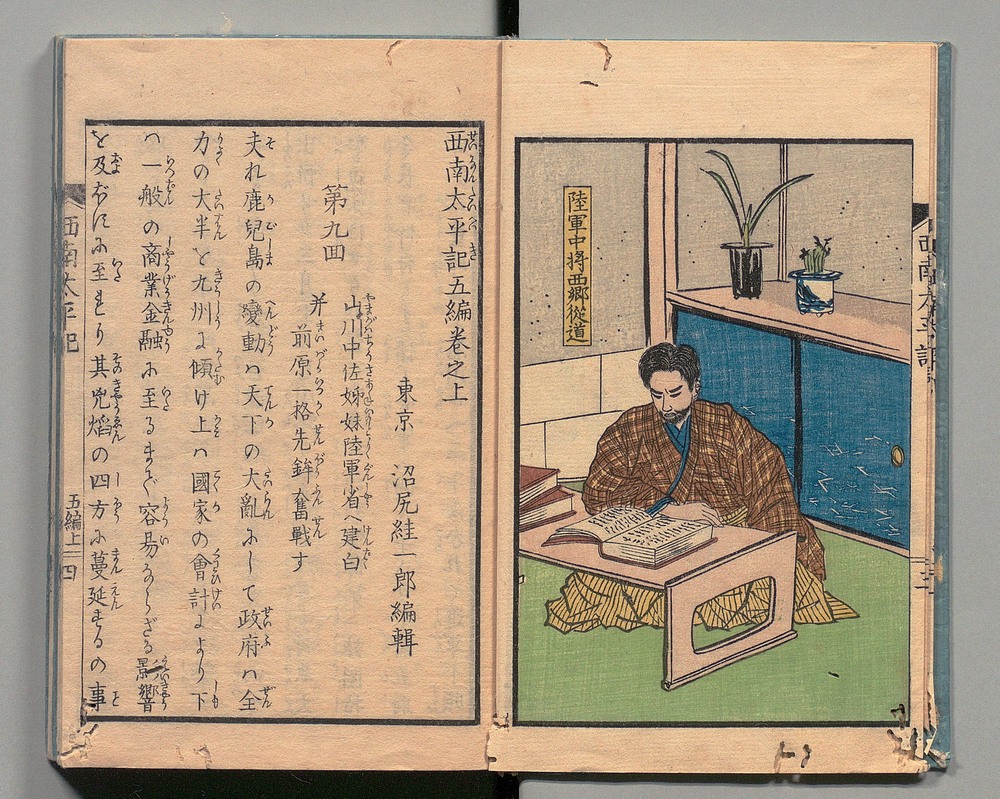 陸軍中將西郷從道
西南太平記五編卷之上
東京　沼尻絓一郎編輯
第九回
山川中佐姊妹陸軍省へ建白
并前原一格先鉾奮戰す
夫れ鹿兒島の變動ハ天下の大亂にして政府ハ全
力の大半を九州に傾け上ハ國家の會計より下
ハ一般の商業金融に至るまで容易ならざる影響
を及ぼすに至れり其兇焰の四方に蔓延するの事
西南太平記
五編上
四